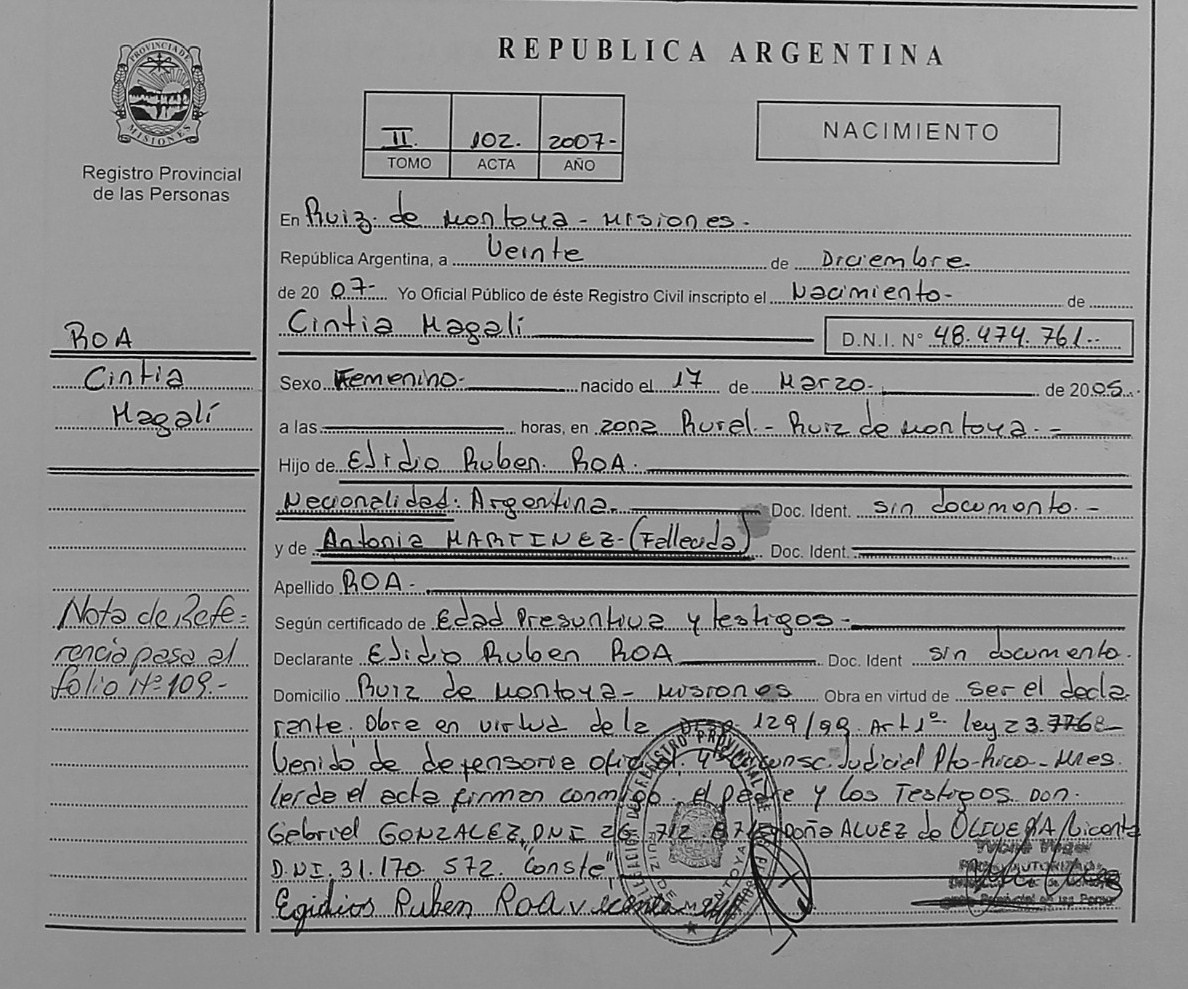 REPUBLICA ARGENTINA
PROVINCIA DE MISIONES
Registro Provincial
de las Personas
II. 102. 2007-
TOMO ACTA AÑO
NACIMIENTO
En Ruiz de Montoya - Misiones -
República Argentina, a Veinte de Diciembre
de 20 07- Yo Oficial Público de éste Registro Civil inscripto el Nacimiento- de
Cintia Magalí
D.N.I. N° 48.474.761--
ROA
Cintia
Magalí
Sexo Femenino- nacido el 17 de Marzo- de 2005
a las horas, en zona Rural - Ruiz de Montoya. -
Hijo de Elidio Ruben ROA.
Nacionalidad: Argentina. Doc. Ident. sin documento. -
y de Antonia MARTINEZ - (Fallecida) Doc. Ident.
Apellido ROA -
Según certificado de Edad Presuntiva y testigos -
Declarante Elidio Ruben ROA Doc. Ident sin documento.
Domicilio Ruiz de Montoya - Misiones Obra en virtud de ser el decla-
rante. Obra en virtud de la 129/99. Art 1º ley 23.776
Venido de defensoria oficial Judicial Pto-Rico - Mnes.
leida el acta firman conmigo el padre y los Testigos Don.
Gebriel GONZALEZ, DNI 26.712. Doña ALVEZ de OLIVERA
D.NI. 31.170.572. "Conste"
Egidios Ruben Roa
Nota de Refe=
rencia pasa al
folio Nº 109.-